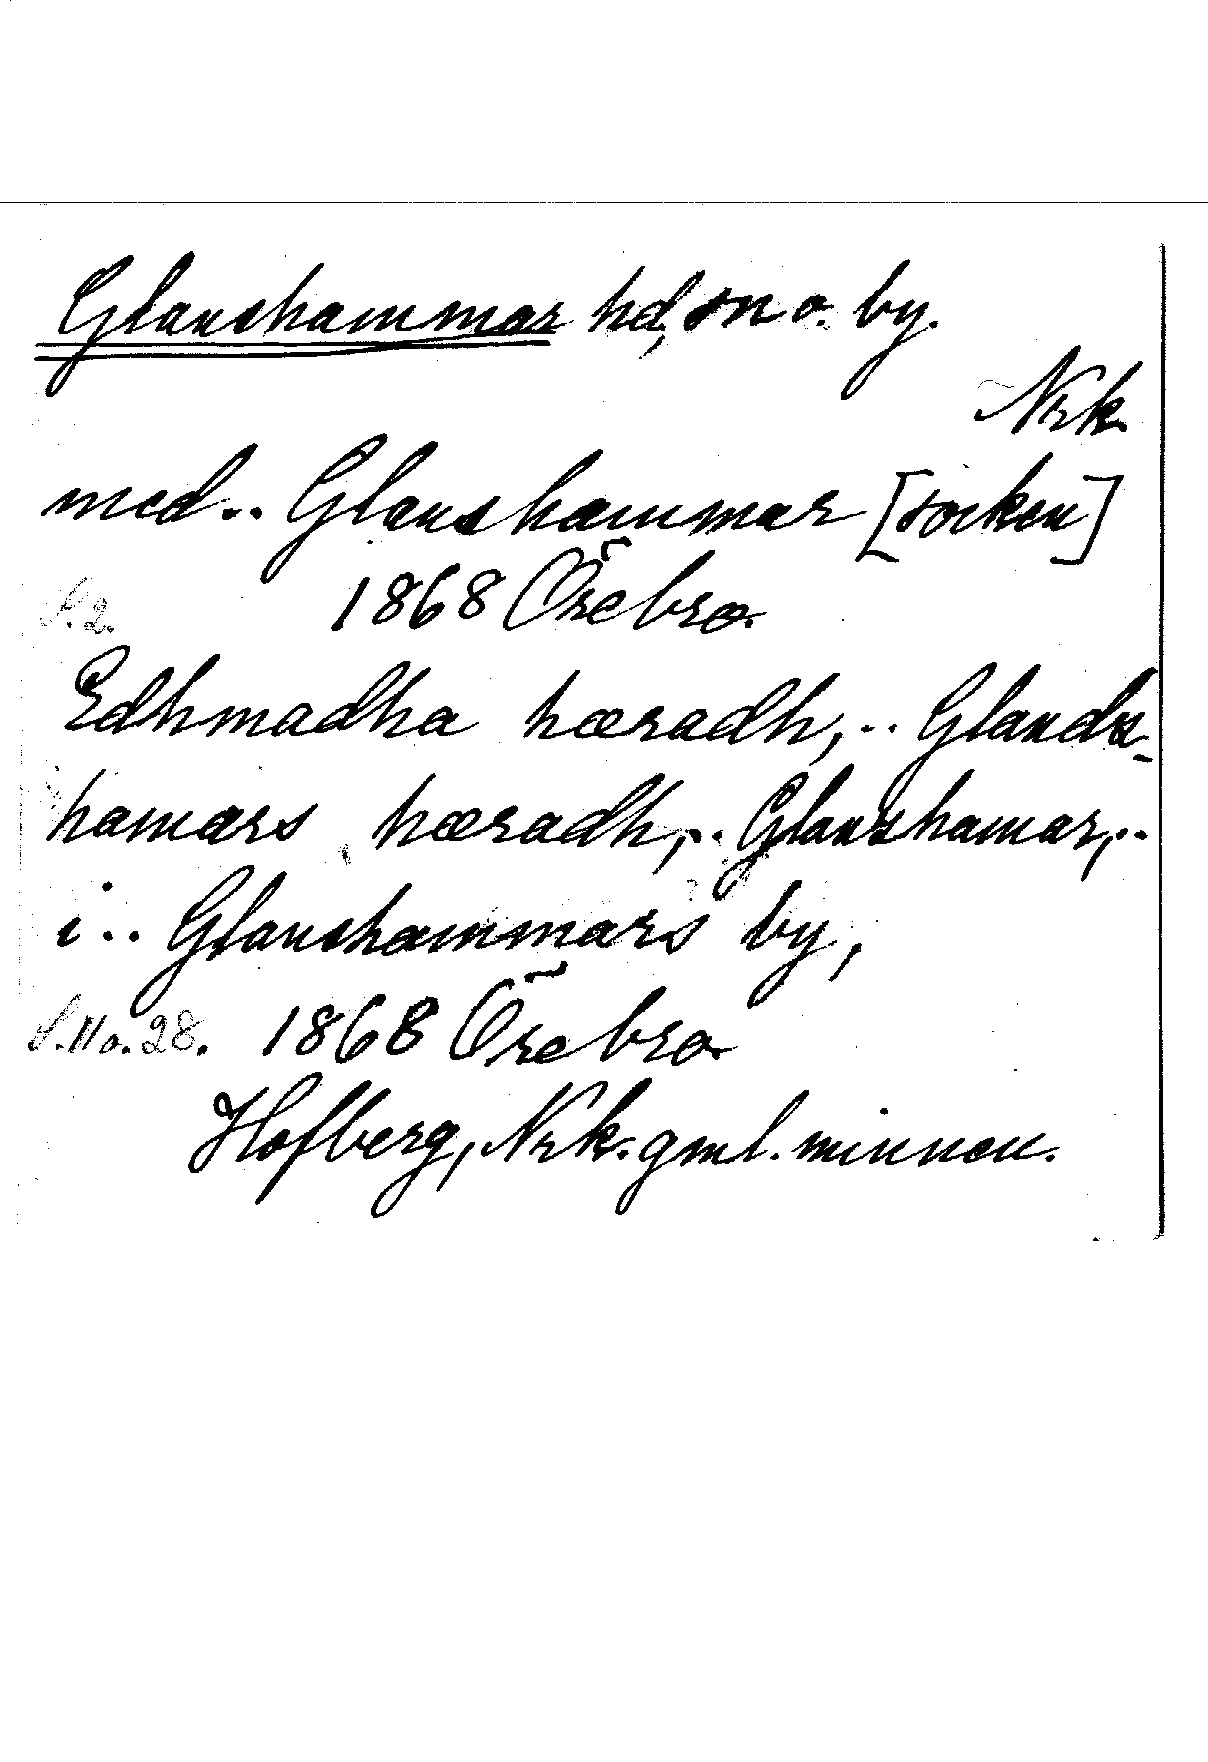 Glanshammar hd, sn o. by.
Nrk
med.. Glanshammar [socken]
S. 2. 1868 Örebro.
Edhmadha hæradh, .. Glands-
hamars hæradh, .. Glanshamar, ..
i .. Glanshammars by,
S. 11 o. 28. 1868 Örebro
Hofberg, Nrk. gml. minnen.